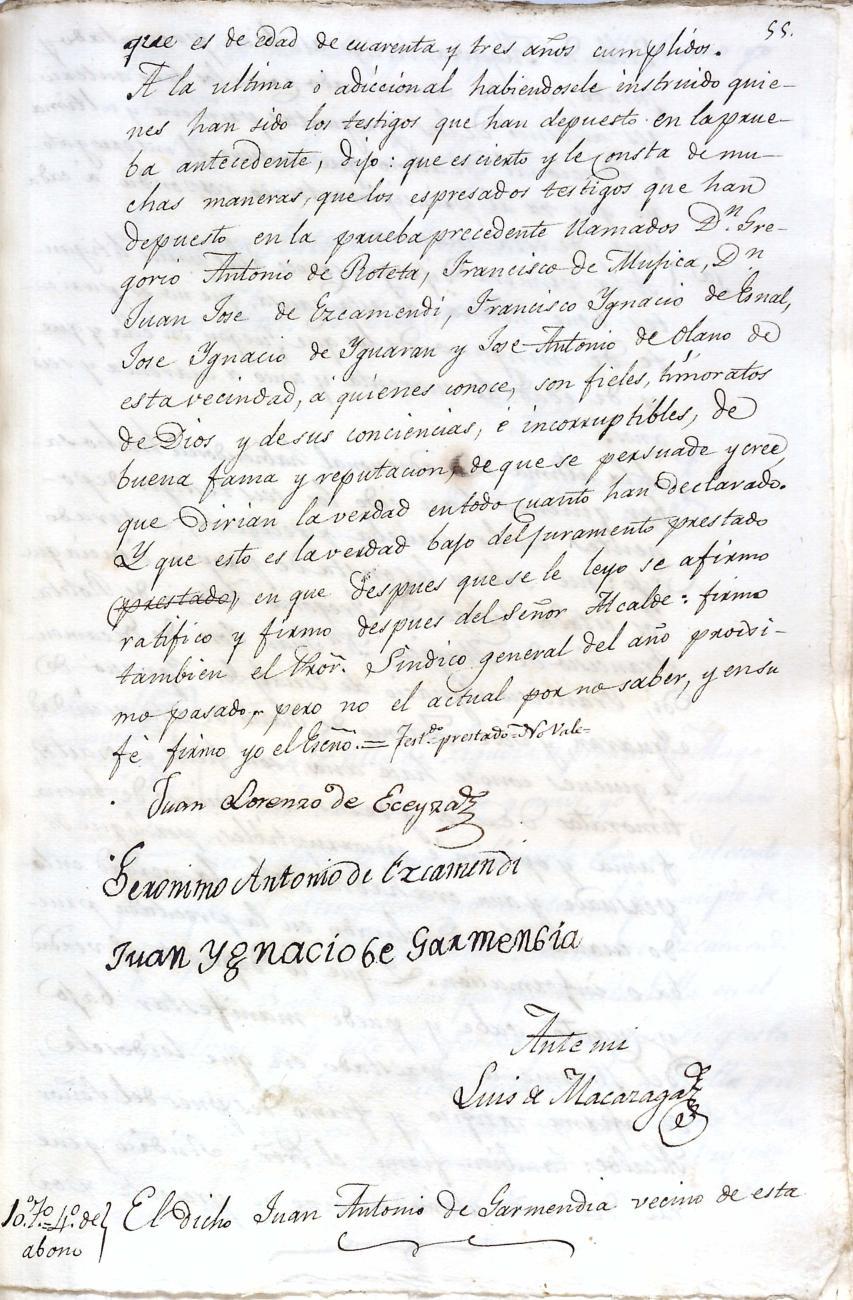 55.
que es de edad de cuarenta y tres años cumplidos.
A la ultima o adiccional habiendosele instruido quie-
nes han sido los testigos que han depuesto en la prue-
ba antecedente, dijo: que es cierto y le consta de mu-
chas maneras, que los espresados testigos que han
depuesto en la prueba precedente llamados Dn. Gre-
gorio Antonio de Roteta, Francisco de Mujica, Dn
Juan Jose de Ezcamendi, Francisco Ygnacio de Esnal,
Jose Ygnacio de Yguaran y Jose Antonio de Olano de
esta vecindad, á quienes conoce, son fieles, timoratos
de Dios y de sus conciencias, é incorruptibles, de
buena fama y reputacion, de que se persuade y cree
que dirian la verdad en todo cuanto han declarado.
Y que esto es la verdad bajo del juramento prestado
(prestado) en que despues que se le leyo se afirmo
ratifico y firmo despues del Señor Alcalde: firmo
tambien el Pror. Sindico general del año procsi-
mo pasado, pero no el actual por no saber, y en su
fé firmo yo el Esño. = Testdo. prestado = No Vale =
Juan Lorenzo de Eceyza
Geronimo Antonio de Ezcamendi
Juan Ygnacio de Garmendia
Ante mi
Luis de Macazaga
10.º 7.º 4.º del
abono
El dicho Juan Antonio de Garmendia vecino de esta